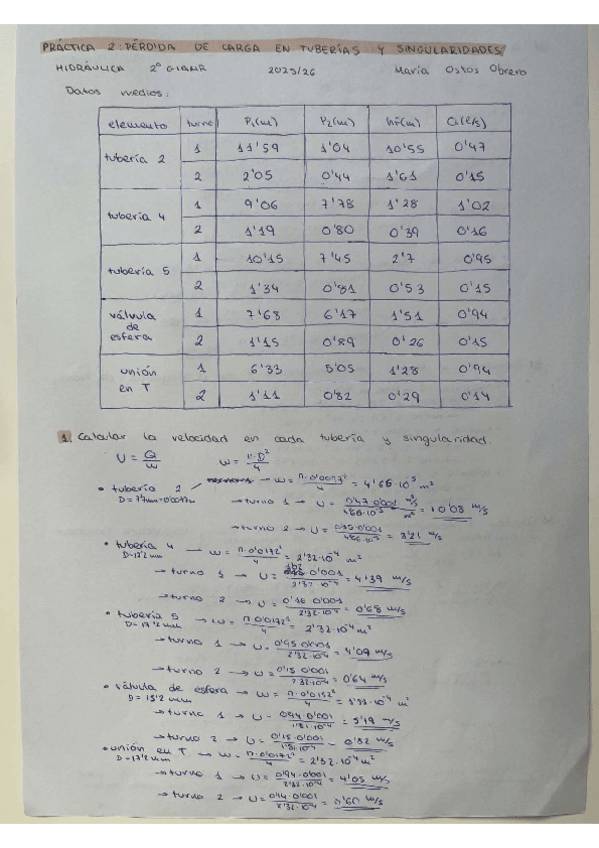 PRÁCTICA 2: PÉRDIDA DE CARGA EN TUBERÍAS Y SINGULARIDADES
HIDRÁULICA 2º GIAMR 2025/26 María Ostos Obrero
Datos medios:
elemento turno P₁(m) P₂(m) hf(m) Q(l/s)
tubería 2 1 11'59 1'04 10'55 0'47
2 2'05 0'44 1'61 0'15
tubería 4 1 9'06 7'78 1'28 1'02
2 1'19 0'80 0'39 0'16
tubería 5 1 10'15 7'45 2'7 0'95
2 1'34 0'81 0'53 0'15
válvula de esfera 1 7'68 6'17 1'51 0'94
2 1'15 0'89 0'26 0'15
unión en T 1 6'33 5'05 1'28 0'94
2 1'11 0'82 0'29 0'14
1. Calcular la velocidad en cada tubería y singularidad.
U = Q/w w = π·D²/4
• tubería 2 → w = π·0'0077²/4 = 4'66·10⁻⁵ m²
D = 7'7mm = 0'0077m
→ turno 1 → U = 0'47·0'001/4'66·10⁻⁵ m³/s/m² = 10'08 m/s
→ turno 2 → U = 0'15·0'001/4'66·10⁻⁵ = 3'21 m/s
• tubería 4 → w = π·0'0172²/4 = 2'32·10⁻⁴ m²
D = 17'2 mm
→ turno 1 → U = 1'02·0'001/2'32·10⁻⁴ = 4'39 m/s
→ turno 2 → U = 0'16·0'001/2'32·10⁻⁴ = 0'68 m/s
• tubería 5 → w = π·0'0172²/4 = 2'32·10⁻⁴ m²
D = 17'2 mm
→ turno 1 → U = 0'95·0'001/2'32·10⁻⁴ = 4'09 m/s
→ turno 2 → U = 0'15·0'001/2'32·10⁻⁴ = 0'64 m/s
• válvula de esfera → w = π·0'0152²/4 = m²
D = 15'2 mm
→ turno 1 → U = 0'94·0'001/1'81·10⁻⁴ = 5'19 m/s
→ turno 2 → U = 0'15·0'001/1'81·10⁻⁴ = 0'82 m/s
• unión en T → w = π·0'0172²/4 = 2'32·10⁻⁴ m²
D = 17'2 mm
→ turno 1 → U = 0'94·0'001/2'32·10⁻⁴ = 4'05 m/s
→ turno 2 → U = 0'14·0'001/2'32·10⁻⁴ = 0'60 m/s